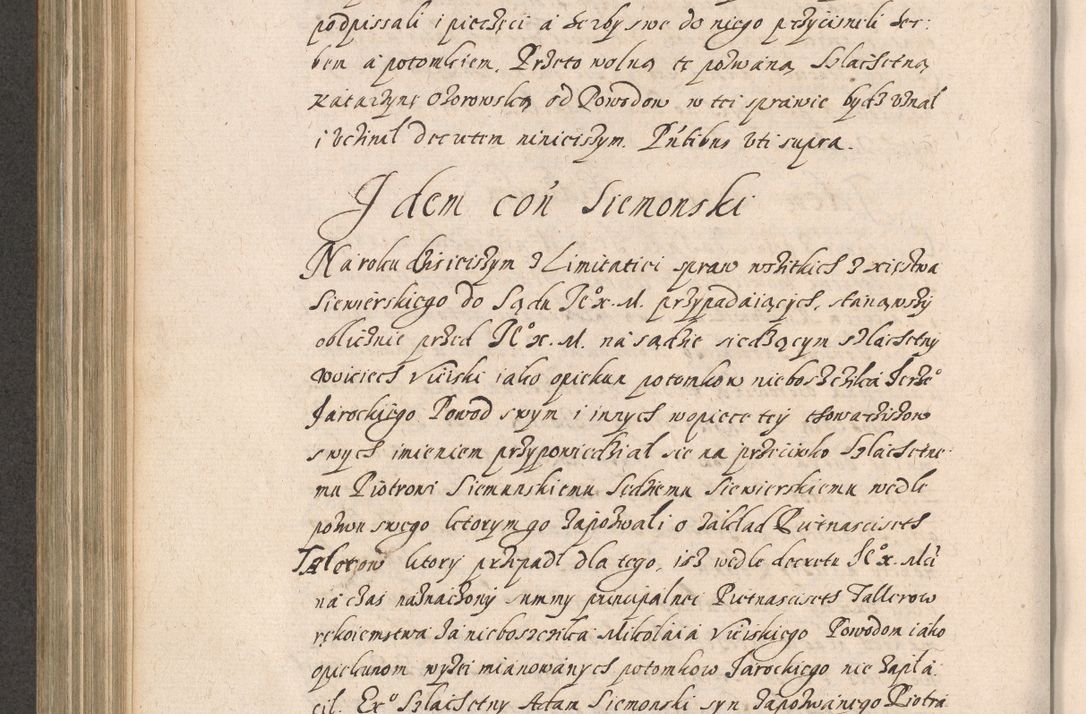 podpissali i pieczęci a herby swe do niego przycisneli her:
bem a potomkiem. Przeto wolną tę pozwaną Szlachetną
Katarzynę Ożorowską od Powodow w tei sprawie bydź uznał
i uczinił decretem ninieiszym. Pntibus uti supra.
Idem con Siemonski
Na roku dzisieiszym z Limitatiei spraw wszitkich z xięstwa
Siewierskiego do Sądu Jeo x. M. przypadaiących, stanąwszy
oblicznie przed Jeo x. M. na sądzie siedzącym szlachetny
Woiciech Uieiski iako opiekun potomkow nieboszczika Jerzeo
Jarockiego Powod swym i innych w opiece tey towarziszow
swych imieniem przypowiedział sie na przeciwko Szlachetne:
mu Piotrowi Siemunskiemu Sędziemu Siewierskiemu wedle
pozwu swego ktorym go zapozwali o zakład Piętnasciset
Talerow ktory przepadł dla tego, isz wedle decretu Jeo x. Mci
na czas naznaczony summy principalnei Pietnasciset Tallerow
rękoiemstwa za nieboszczika Mikolaia Uieiskiego Powodom iako
opiekunom wyżei mianowanych potomkow Jarockiego nie zapła:
cił. Exo Szlachetny Adam Siemonski syn zapozwanego Piotra